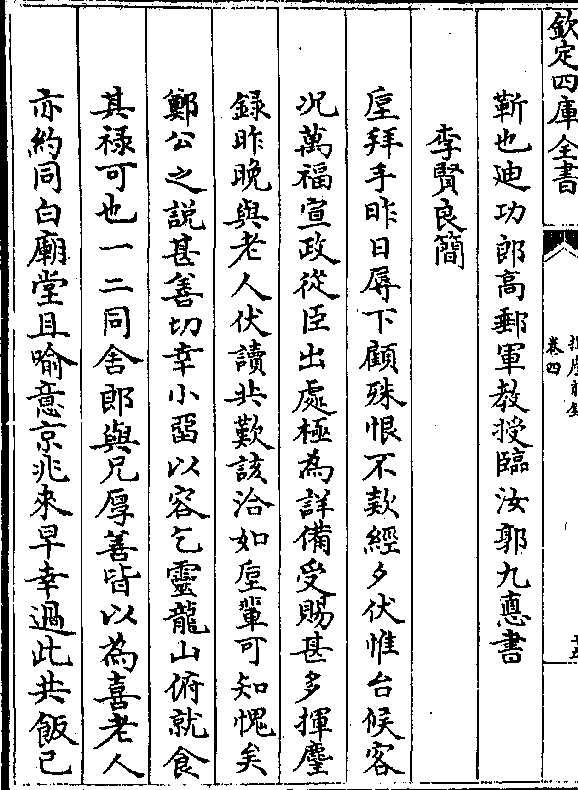 欽定四庫全書
卷四
靳也迪功郎高郵軍教授臨汝郭九惪書
李賢良簡
垕拜手昨日辱下顧殊恨不欵經夕伏惟台候客
况萬福宣政從臣出處極為詳備受賜甚多揮麈
録昨晚與老人伏讀共歎該洽如垕輩可知愧矣
鄭公之説甚善切幸小畱以容乞靈龍山俯就食
其禄可也一二同舍郎與兄厚善皆以為喜老人
亦約同白廟堂且喻意京兆來早幸過此共飯已